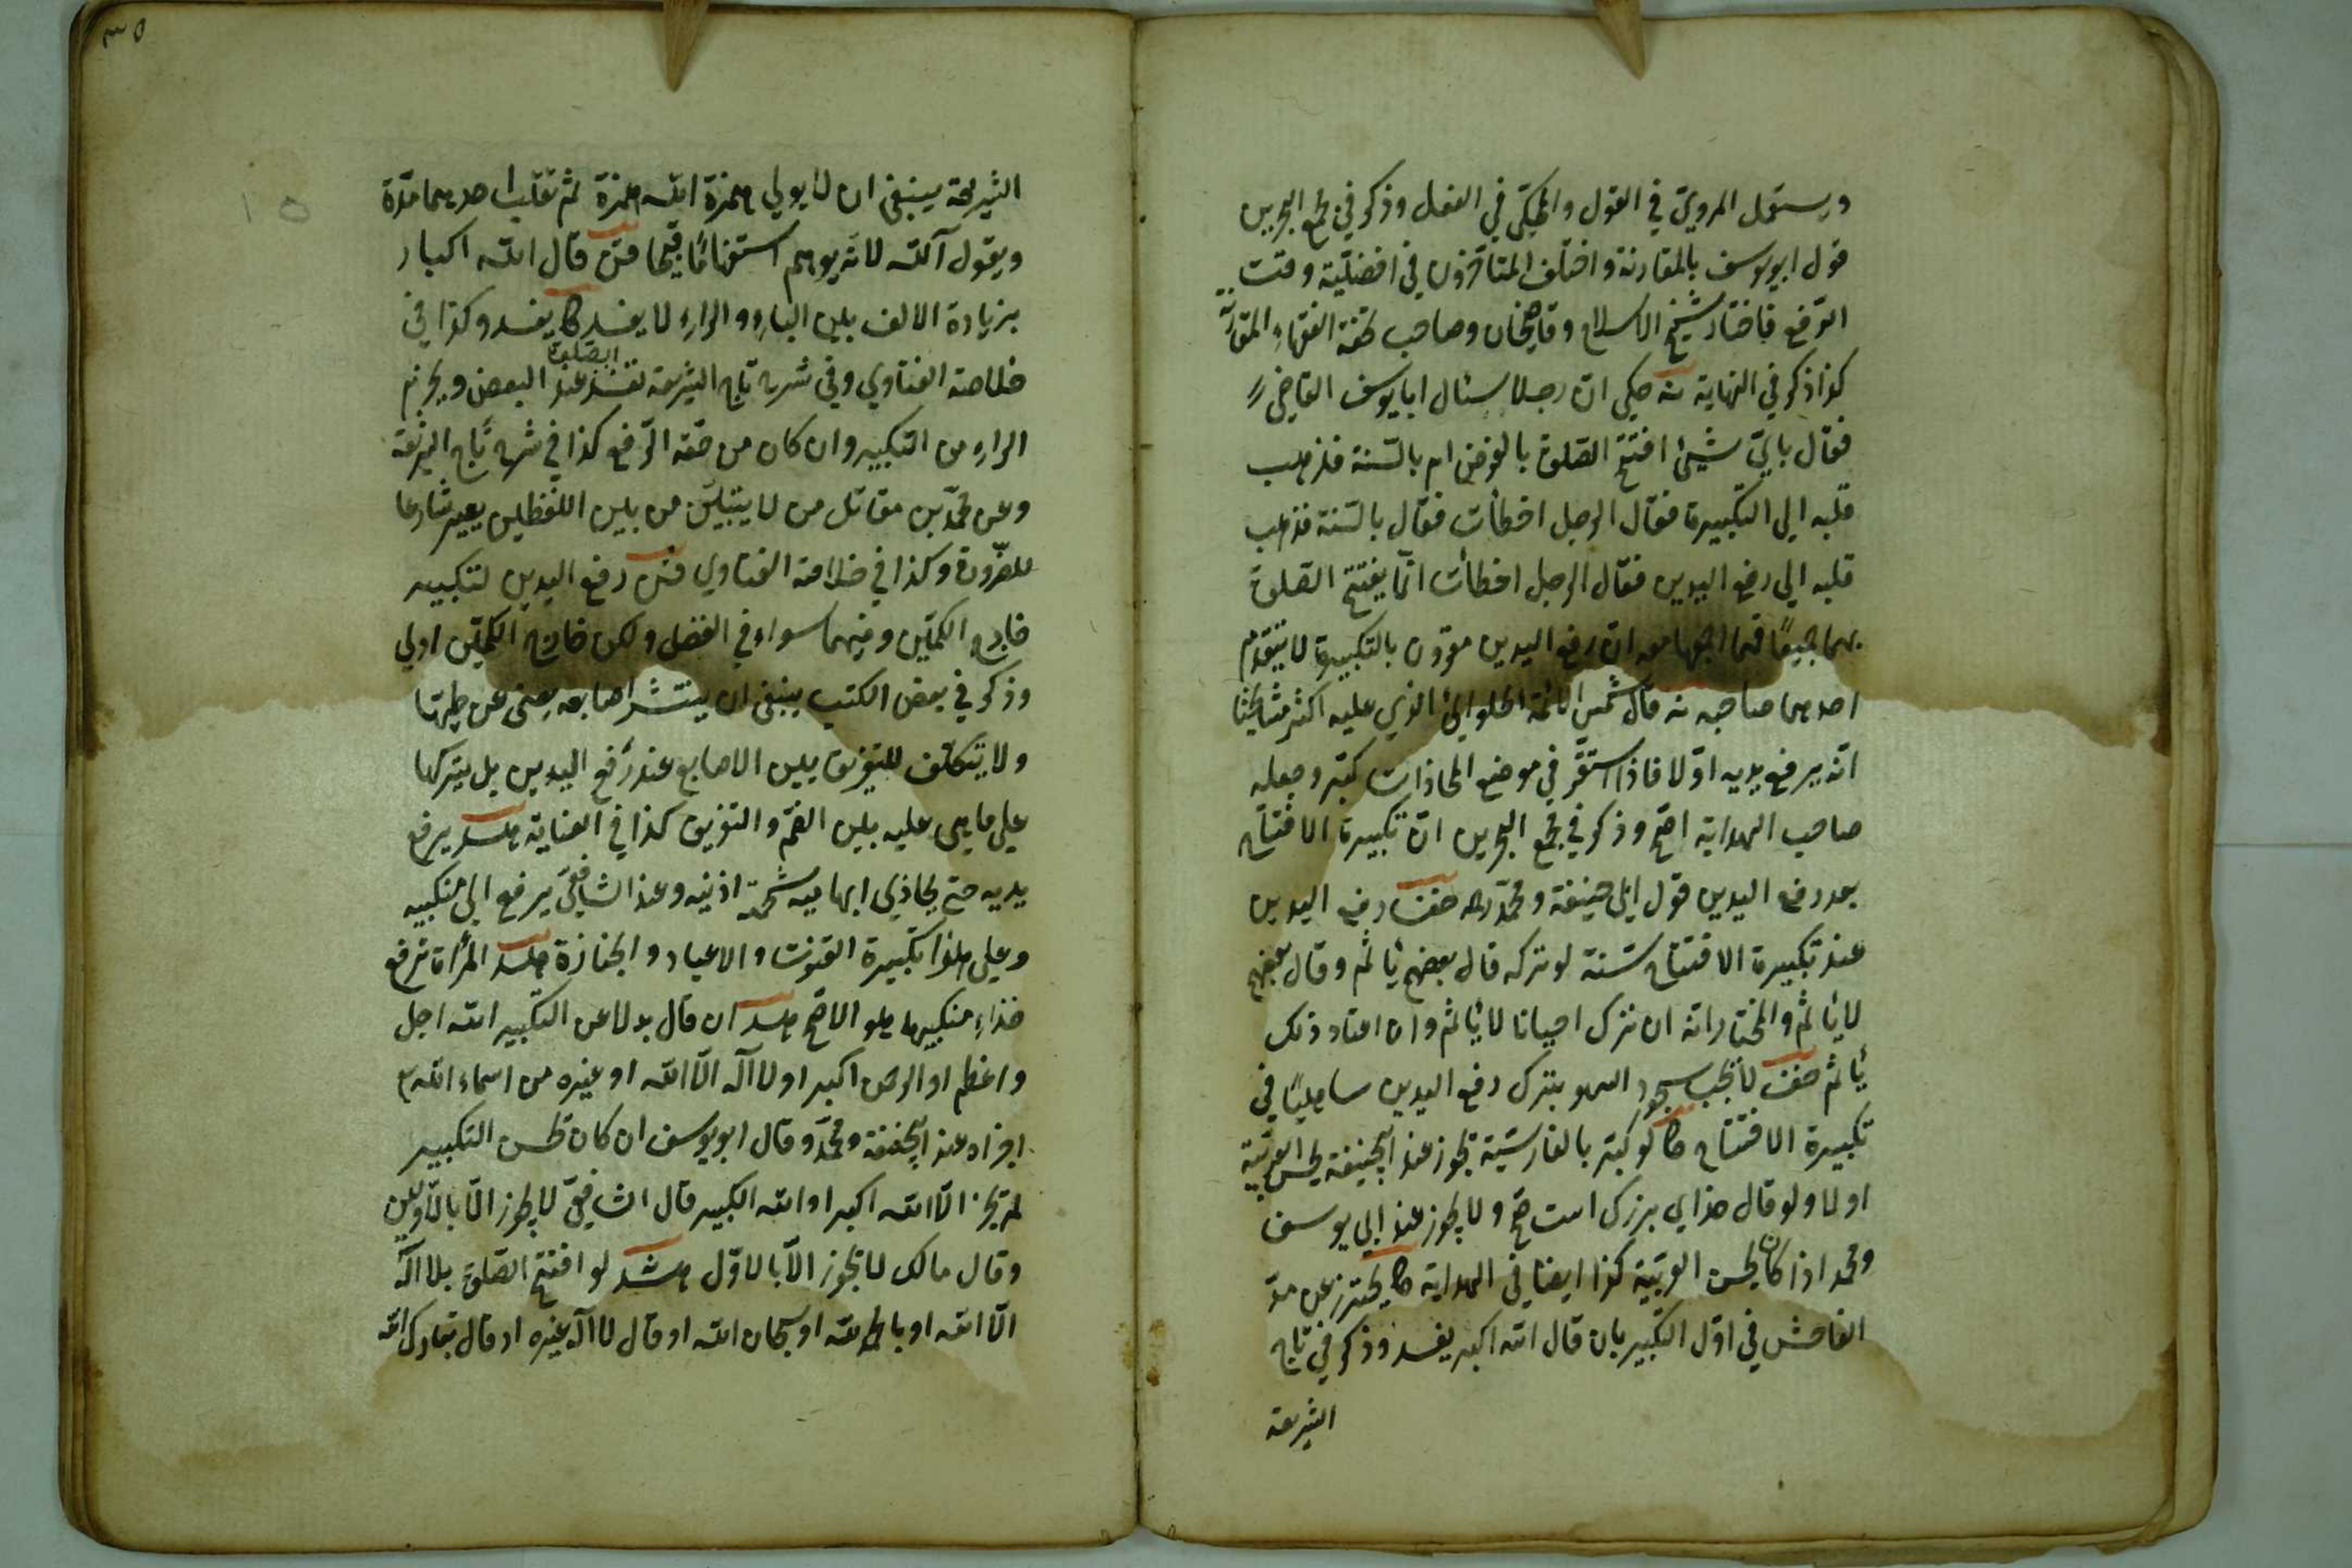 ويستعمل المروي في القول والمحكي في الفعل وذكر في مجمع البحرين
قول ابو يوسف بالمقارنة واختلف المتأخرون في افضلية وقت
الرفع فاختار شيخ الاسلام وقاضيخان وصاحب تحفة الفقهاء المقارنة
كذا ذكر في النهاية حكي ان رجلا سئال ابا يوسف القاضي
فقال باي شيئ افتتح الصلوة بالفرض ام بالسنة فذهب
قلبه الي التكبيرة فقال الرجل اخطأت فقال بالسنة فذهب
قلبه الي رفع اليدين فقال الرجل اخطأت انما يفتتح الصلوة
بهما جميعا ان رفع اليدين مقرون بالتكبيرة لا يتقدم
احدهما صاحبه قال شمس الائمة الحلوائي الذي عليه اكثر مشايخنا
انه يرفع يديه اولا فاذا استقر في موضع المحاذات كبر وجعله
صاحب الهداية اصح وذكر في مجمع البحرين ان تكبيرة الافتتاح
بعد رفع اليدين قول ابي حنيفة ومحمد رفع اليدين
عند تكبيرة الافتتاح سنة لو تركه قال بعضهم يأثم وقال بعضهم
لا يأثم والمختار انه ان ترك احيانا لا يأثم وان اعتاد ذلك
يأثم لا يجب سجود السهو بترك رفع اليدين ساهيا في
تكبيرة الافتتاح لو كبر بالفارسية يجوز عند ابيحنيفة يحسن العربية
او لا ولو قال خداي بزرك است صح ولا يجوز عند ابي يوسف
ومحمد اذا كان يحسن العربية كذا ايضا في الهداية يحترز عن مد
الفاحش في اول التكبير بان قال الله اكبر يفسد وذكر في تاج
الشريعة
٣٥
١٥
الشريعة ينبغي ان لا يولي همزة الله همزة ثم تقلب احديهما مدة
ويقول آلله لانه يوهم استفهاما قال الله اكبار
بزيادة الالف بين الباء والراء لا يفسد يفسد وكذا في
خلاصة الفتاوي وفي شرح تاج الشريعة تفسد الصلوة عند البعض ويجزم
الراء من التكبير وان كان من حقه الرفع كذا في شرح تاج الشريعة
وعن محمد بن مقاتل من لا يتبين من بين اللفظين يصير شارعا
للضرورة وكذا في خلاصة الفتاوي رفع اليدين لتكبير
خارج الكمين وفيهما سواء في الفضل ولكن خارج الكمين اولي
وذكر في بعض الكتب ينبغي ان ينتشر اصابعه يعني عن طيها
ولا يتكلف للتفريق بين الاصابع عند رفع اليدين بل يتركها
علي ما هي عليه بين الضم والتفريق كذا في العناية يرفع
يديه حتي يحاذي ابهاميه شحمة اذنيه وعند الشافعي يرفع الي منكبيه
وعلي هذا تكبيرة القنوت والاعياد والجنازة المرأة ترفع
حذاء منكبيها هو الاصح ان قال بدلا عن التكبير الله اجل
واعظم او الرحمن اكبر او لا اله الا الله او غيره من اسماء الله
اجزاه عند ابيحنيفة ومحمد وقال ابو يوسف ان كان يحسن التكبير
لم يجز الا الله اكبر او الله الكبير قال الشافعي لا يجوز الا بالاولين
وقال مالك لا يجوز الا بالاول لو افتتح الصلوة بلا اله
الا الله او بالحمد لله او سبحان الله او قال لا اله غيره او قال تبارك الله